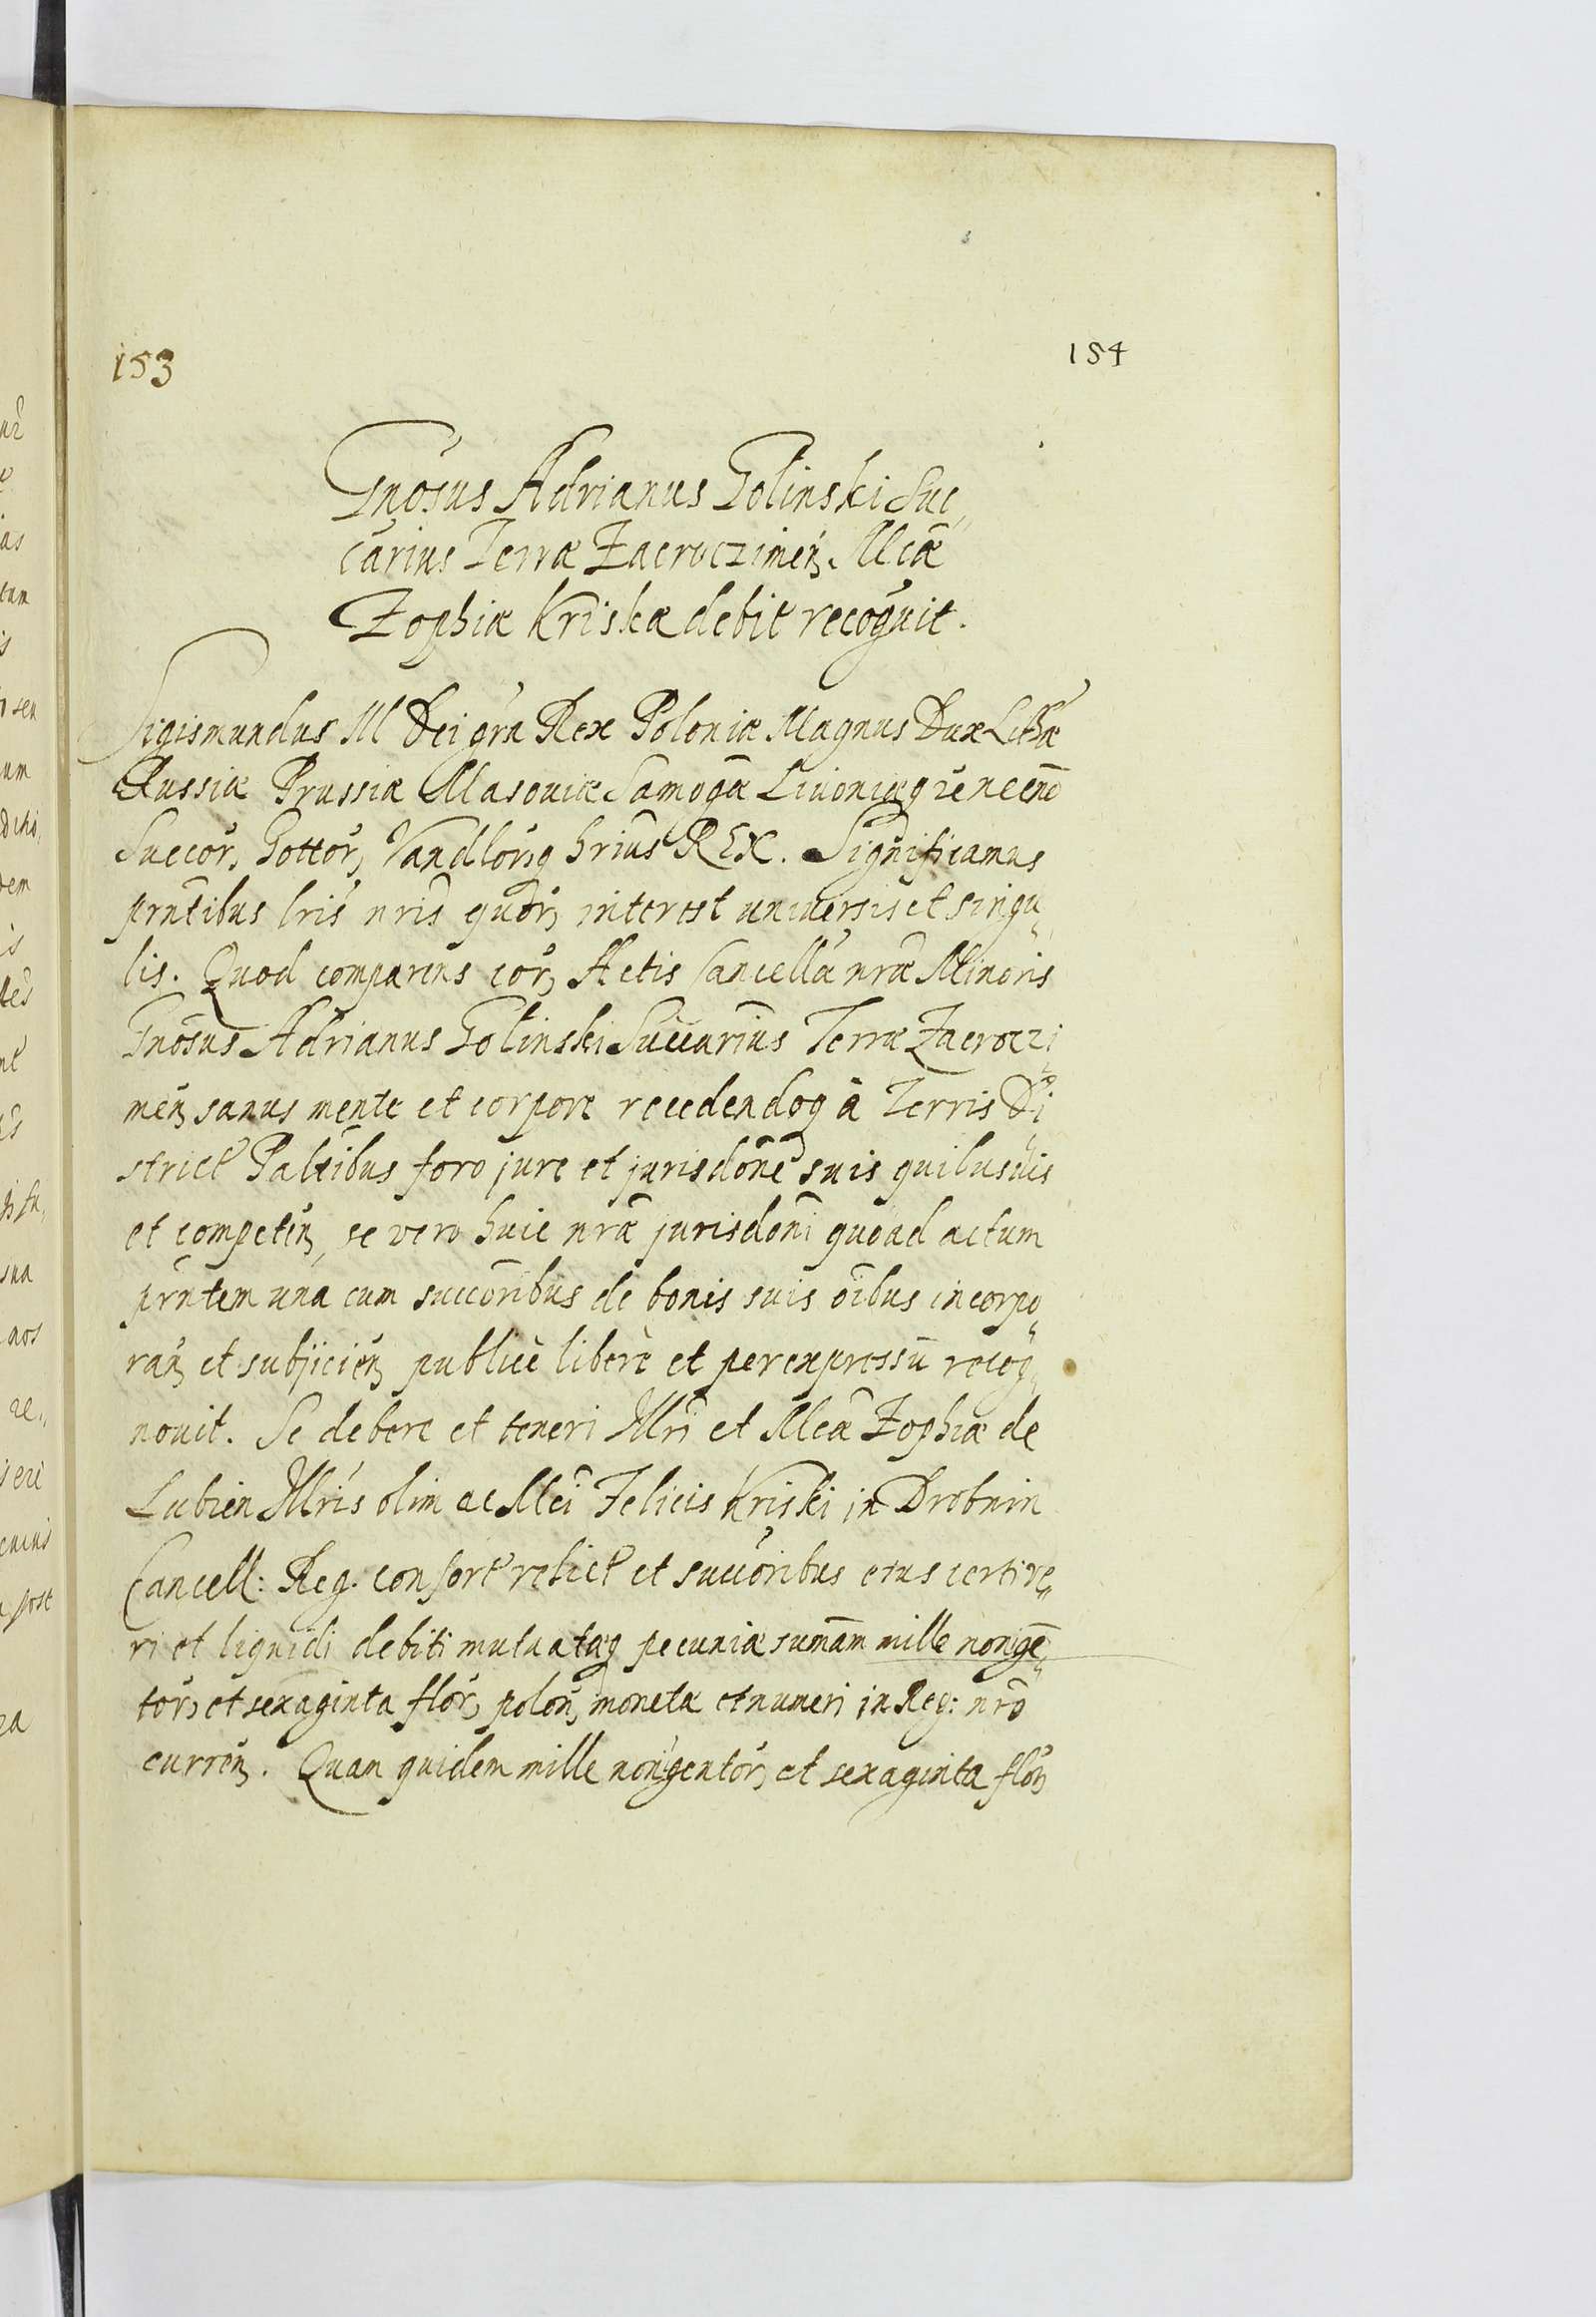 153
154
Gnosus Adrianus Golinski Suc
carius Terræ Zacroczimeń. Mcæ
Zophiæ Kriskæ debit recognit.
Sigismundus III Dei gra Rex Poloniæ Magnus Dux Lithæ
Russiæ Prussiæ Masouiæ Samogæ Liuoniæq necno
Suecor, Gottor, Vandlorq hrius REX. Significamus
prntibus lris nris quor, interest universis et singu
lis. Quod comparens cor, Actis Cancellæ nræ Minoris
Gnosus Adrianus Golinski Succarius Terræ Zacroczi
men, sanus mente et corpore recedendoq à Terris Di
strict Paltibus foro jure et jurisdone suis quibusuis
et competen, se vero huic nræ jurisdoni quoad actum
prntem una cum succoribus de bonis suis oibus incorpo
ran, et subjicien, publicè liberè et per expressu recog
nouit. Se debere et teneri Mri et Mcæ Zophiæ de
Lubien Mris olim ac Mci Felicis Kriski in Drobnin
Cancell: Reg. consort relict et succoribus eius certi ve
ri et liquidi debiti mutuatæq pecuniæ sumam mille nonge
tor, et sexaginta flor, polon, monetæ et numeri in Reg: nro
curren,. Quam quidem mille nongentor, et sexaginta flor,